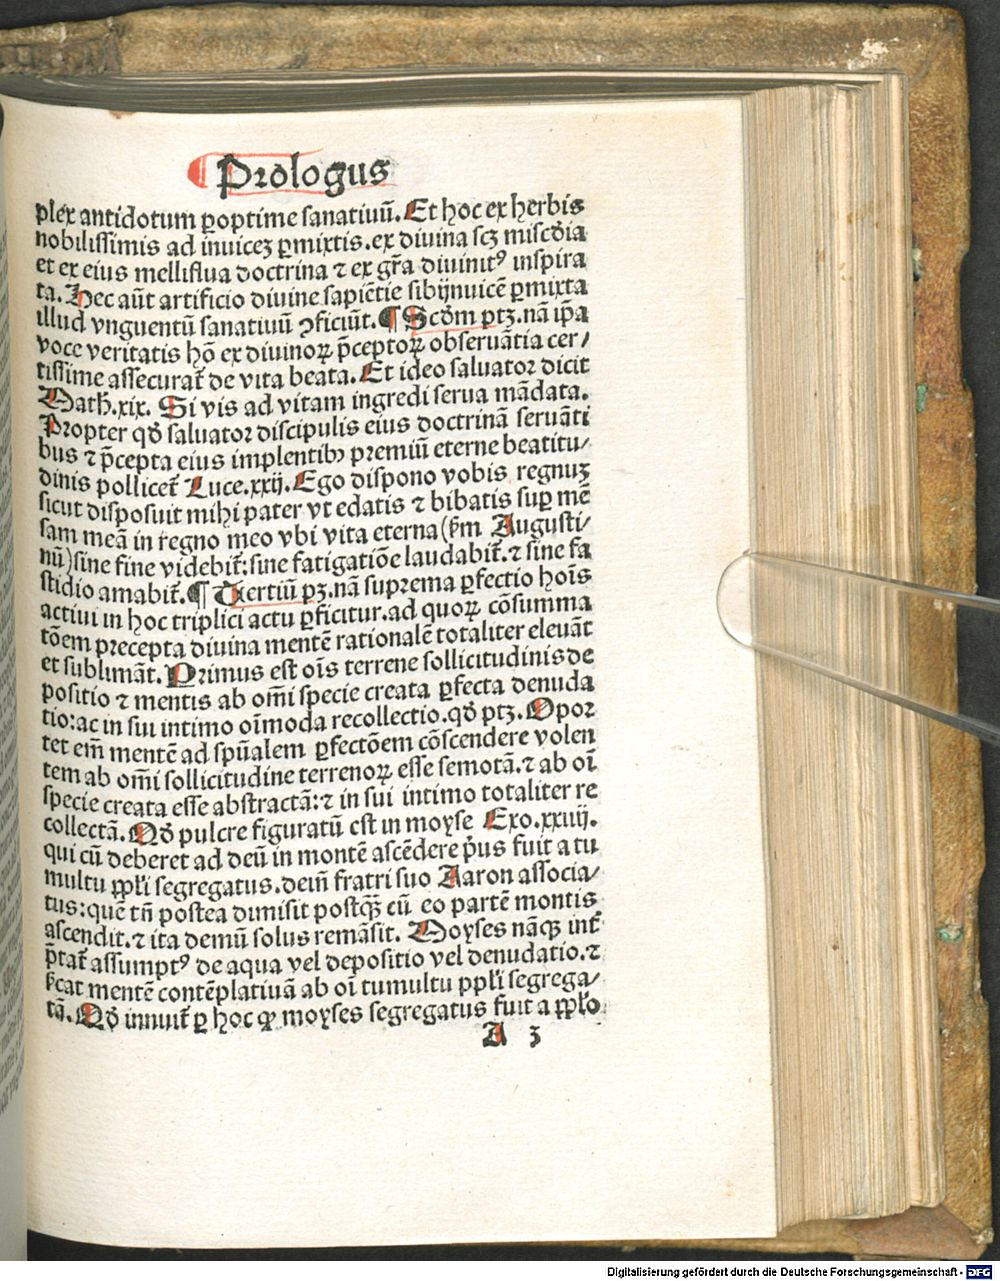 Prologus
plex antidotum ꝑoptime sanatiuū. Et hoc ex herbis
nobilissimis ad inuiceꝫ ꝑmixtis. ex diuina scꝫ miscḋia
et ex eius melliflua doctrina ⁊ ex gr̄a diuinitꝰ inspira
ta. Hec aūt artificio diuine sapiētie sibijnuicē ꝑmixta
illud vnguentū sanatiuū ꝯficiūt. ¶ Scḋm ptꝫ. nā ip̄a
voce veritatis hō ex diuinoꝝ p̄ceptoꝝ obseruātia cer/
tissime assecurat̄ de vita beata. Et ideo saluator dicit
Math. xix. Si vis ad vitam ingredi serua mādata.
Propter qḋ saluator discipulis eius doctrinā seruāti
bus ⁊ p̄cepta eius implentibꝫ premiū eterne beatitu/
dinis pollicet̄ Luce. xxij. Ego dispono vobis regnuꝫ
sicut disposuit mihi pater vt edatis ⁊ bibatis suꝑ mē
sam meā in regno meo vbi vita eterna (ẜm Augusti/
nū) sine fine videbit̄: sine fatigatiōe laudabit̄. ⁊ sine fa
stidio amabit̄. ¶ Tertiū pꝫ. nā suprema ꝑfectio hoīs
actiui in hoc triplici actu ꝑficitur. ad quoꝝ cōsumma
tōem precepta diuina mentē rationalē totaliter eleuāt
et sublimāt. Primus est oīs terrene sollicitudinis de
positio ⁊ mentis ab om̄i specie creata ꝑfecta denuda
tio: ac in sui intimo oīmoda recollectio. qḋ ptꝫ. Opor
tet em̄ mentē ad spūalem ꝑfectōem cōscendere volen
tem ab om̄i sollicitudine terrenoꝝ esse semotā. ⁊ ab oī
specie creata esse abstractā: ⁊ in sui intimo totaliter re
collectā. Qḋ pulcre figuratū est in moyse Exo. xxiiij.
qui cū deberet ad deū in montē ascēdere p̄us fuit a tu
multu ppl̄i segregatus. dein̄ fratri suo Aaron associa/
tus: quē tn̄ postea dimisit postꝙ̄ cū eo partē montis
ascendit. ⁊ ita demū solus remāsit. Moyses nāqꝫ int̄
p̄tat̄ assumptꝰ de aqua vel depositio vel denudatio. ⁊
ẜcat mentē contēplatiuā ab oī tumultu ppl̄i segrega/
tā. Qḋ innuit̄ ꝑ hoc ꝙ moyses segregatus fuit a ppl̄o
A 3
Digitalisierung gefördert durch die Deutsche Forschungsgemeinschaft - DFG